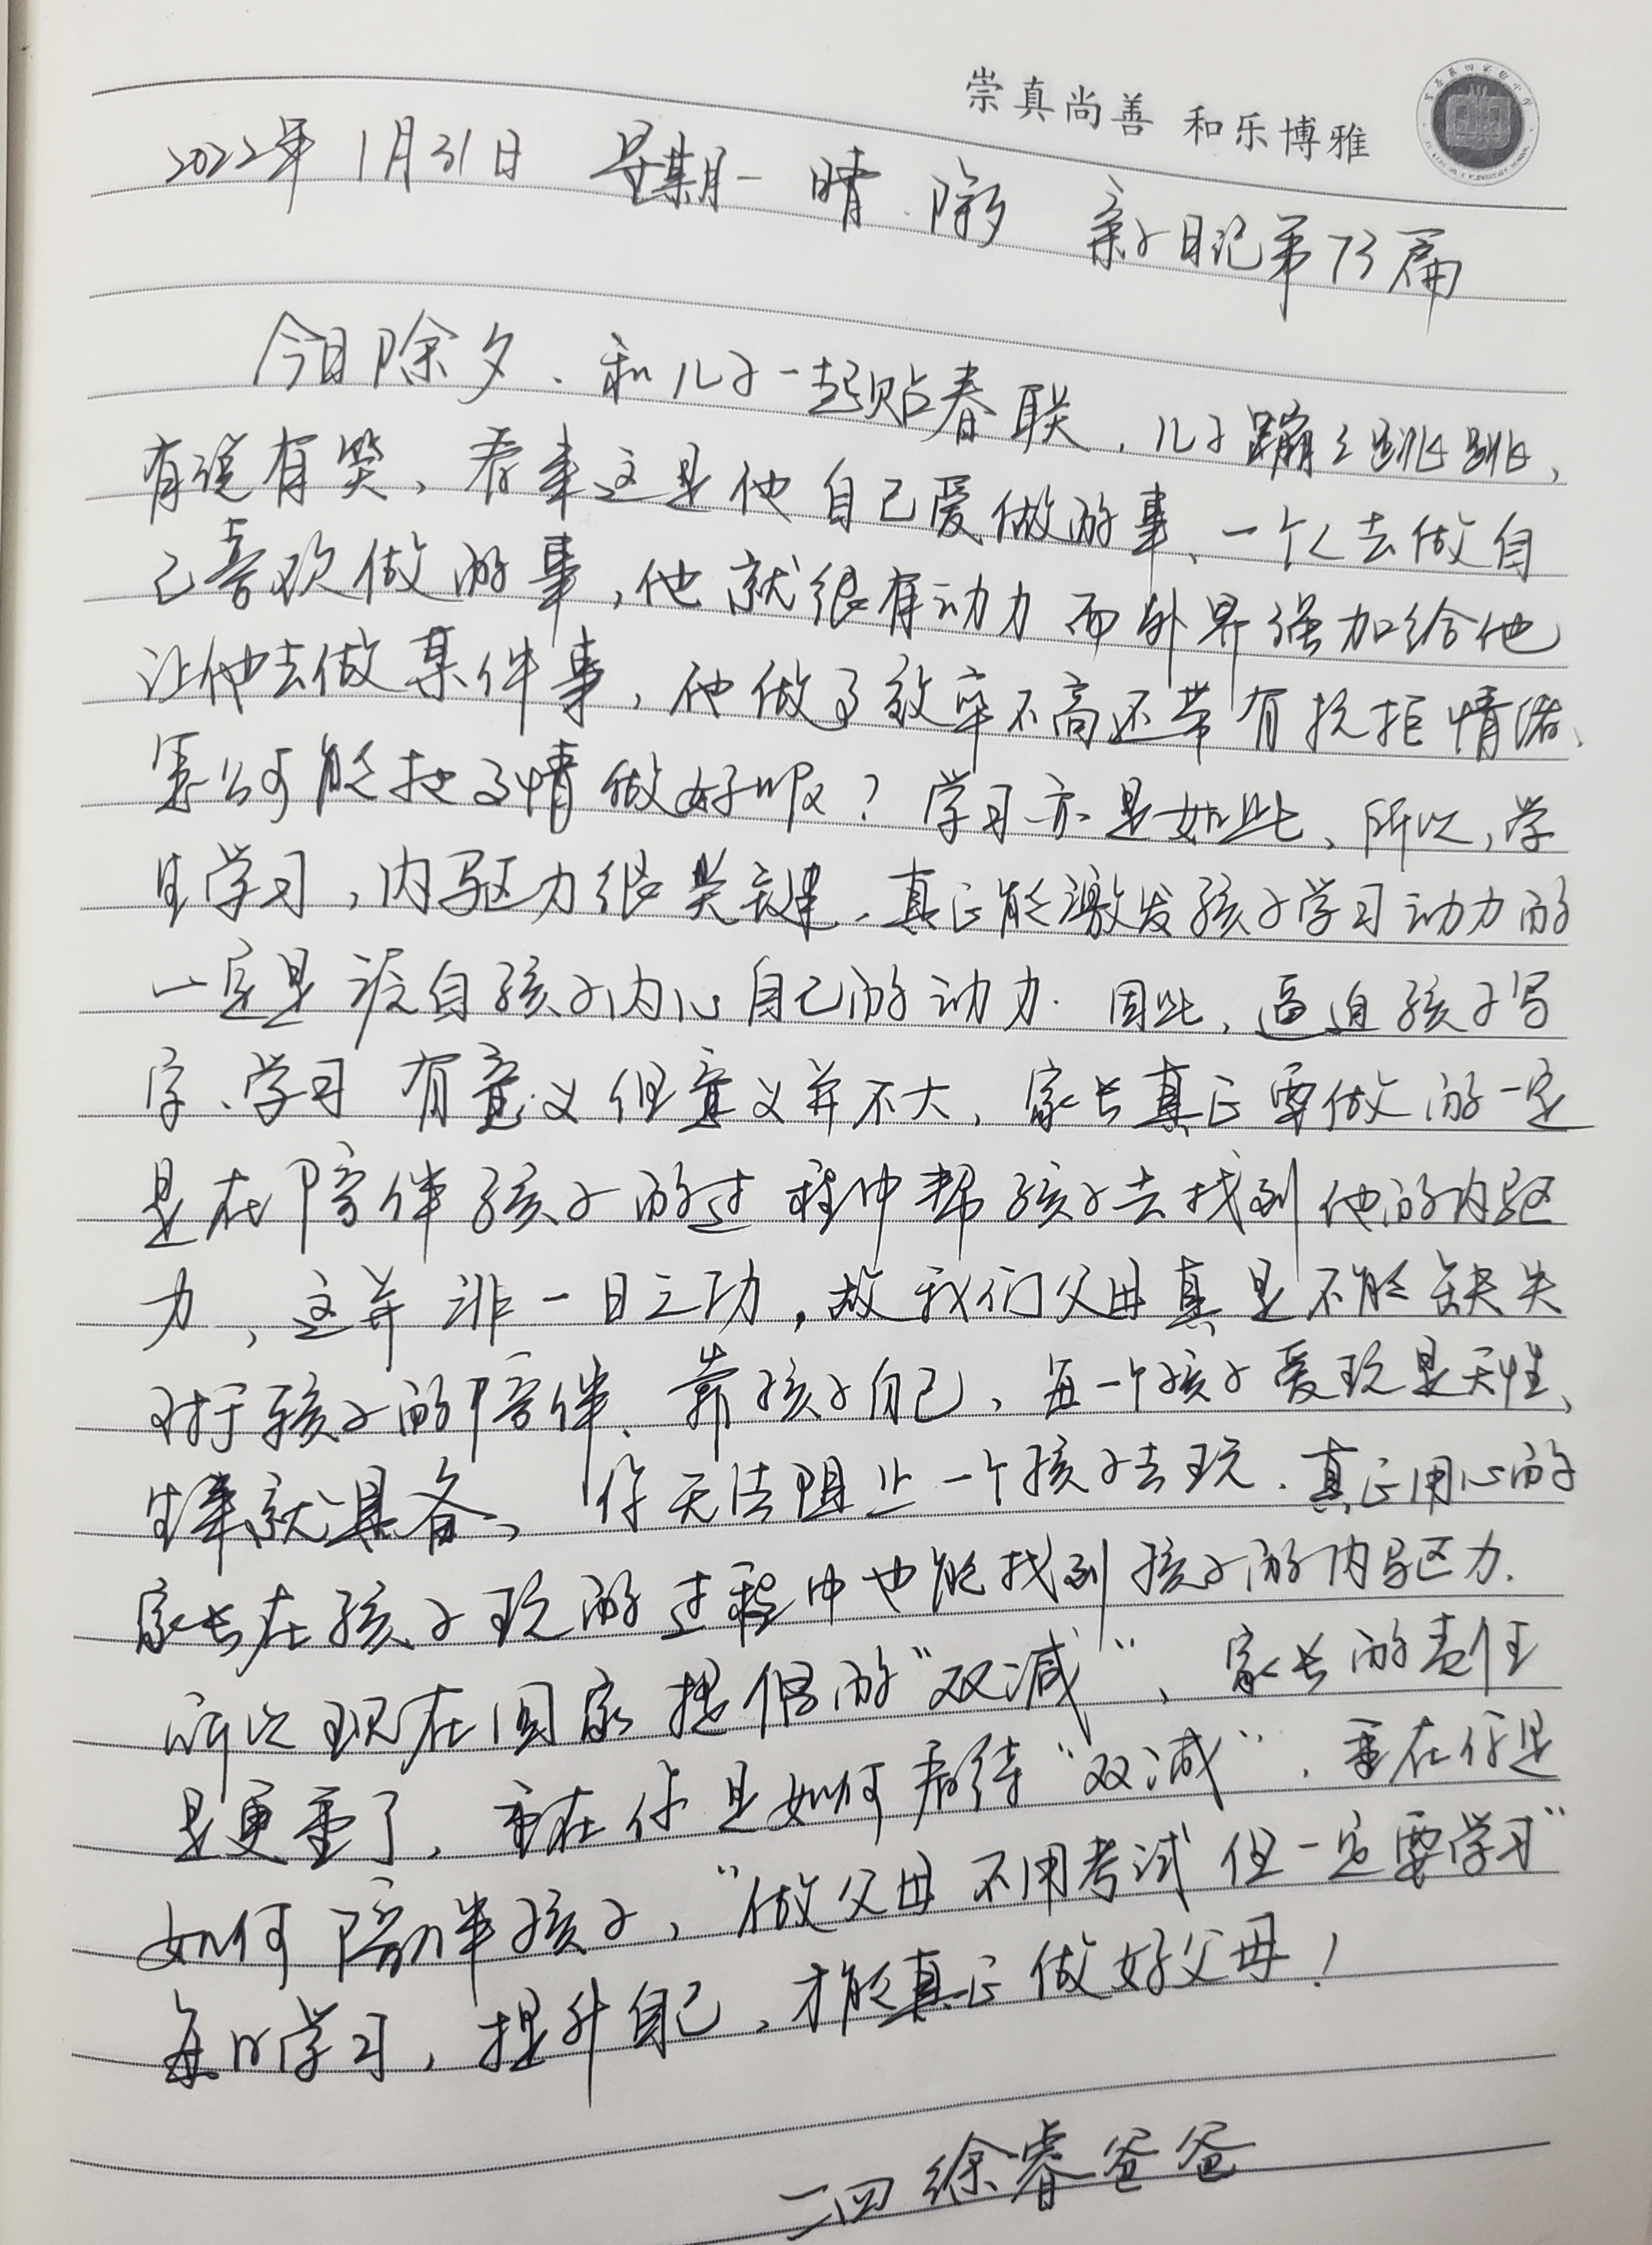 崇真尚善 和乐博雅
2022年 1月31日 星期一 晴 除夕 亲子日记第73篇
今日除夕、和儿子一起贴春联，儿子蹦之跳跳、
有说有笑、看来这是他自己爱做的事、一个人去做自
己喜欢做的事，他就很有动力 而外界强加给他
让他去做某件事，他做了效率不高还带有抗拒情绪、
怎么可能把事情做好呢？学习亦是如此、所以，学
生学习，内驱力很关键、真正能激发孩子学习动力的
一定是源自孩子内心自己的动力. 因此、逼迫孩子写
字、学习 有意义但意义并不大、家长真正要做的一定
是在陪伴孩子的过程中帮孩子去找到他的内驱
力、这并非一日之功，故我们父母真是不能缺失
对于孩子的陪伴、靠孩子自己、每一个孩子爱玩是天性、
生来就具备、你无法阻止一个孩子去玩. 真正用心的
家长在孩子玩的过程中也能找到孩子的内驱力.
所以现在国家提倡的“双减”、家长的责任
是更重了，重在你是如何看待“双减”. 重在你是
如何陪伴孩子、“做父母不用考试 但一定要学习”
每日学习，提升自己、才能真正做好父母！
二四 徐睿爸爸